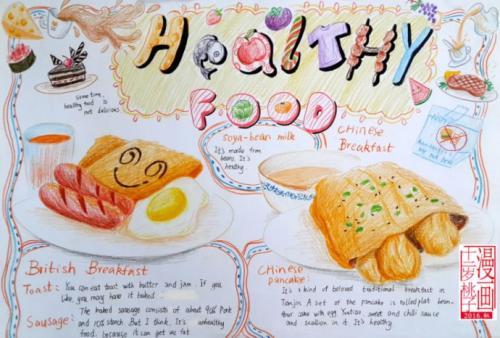 HeaLTHY
FOOD
some time,
healthy food is
not delicious.
soya-bean milk
It's made from
beans. It's
healthy.
Chinese
Breakfast
British Breakfast
Toast: You can eat toast with butter and jam. If you
like, you may have it baked.
Sausage: The baked sausage consists of about 90% Pork
and 10% starch. But I think, It's unhealthy
food, because it can get me fat
Chinese
pancake:
It's a kind of beloved traditional breakfast in
Tianjin. A set of the pancake is rolled plat bean-
flour cake with egg, Youtiao, sweet and chili sauce
and scallion in it. It's healthy
漫画
十萝桃子
2016.秋